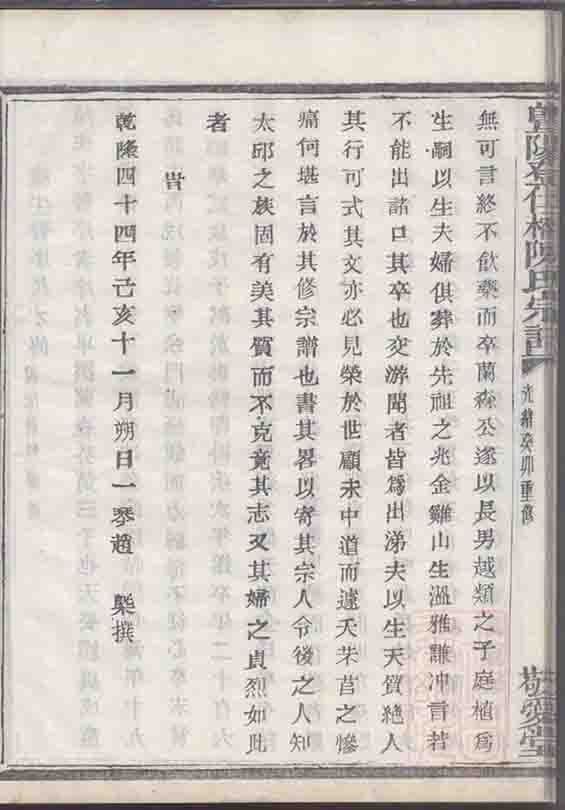 暨陽登仕橋陳氏宗譜
光緒癸卯重修
敬愛堂
無可言終不飲藥而卒蘭森公遂以長男越類之子庭植爲
生嗣以生夫婦俱葬於先祖之兆金雞山生溫雅謙沖言若
不能出諸口其卒也交游聞者皆爲出涕夫以生天質絶人
其行可式其文亦必見榮於世顧未中道而遽夭芣苢之慘
痛何堪言於其修宗譜也書其畧以寄其宗人令後之人知
太邱之族固有美其質而不克竟其志又其婦之貞烈如此
者
旹
乾隆四十四年己亥十一月朔日一琴趙 槼撰